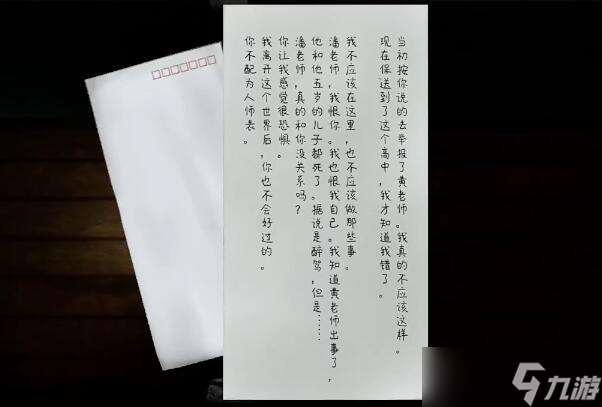 当初按你说的去举报了黄老师。我真的不应该这样。
现在保送到了这个高中，我才知道我错了。
我不应该在这里，也不应该做那些事。
潘老师，我恨你。我也恨我自己。我知道黄老师出事了，
他和他五岁的儿子都死了。据说是醉驾，但是……
潘老师，真的和你没关系吗？
你让我感觉很恐惧。
我离开这个世界后，你也不会好过的。
你不配为人师表。
九游